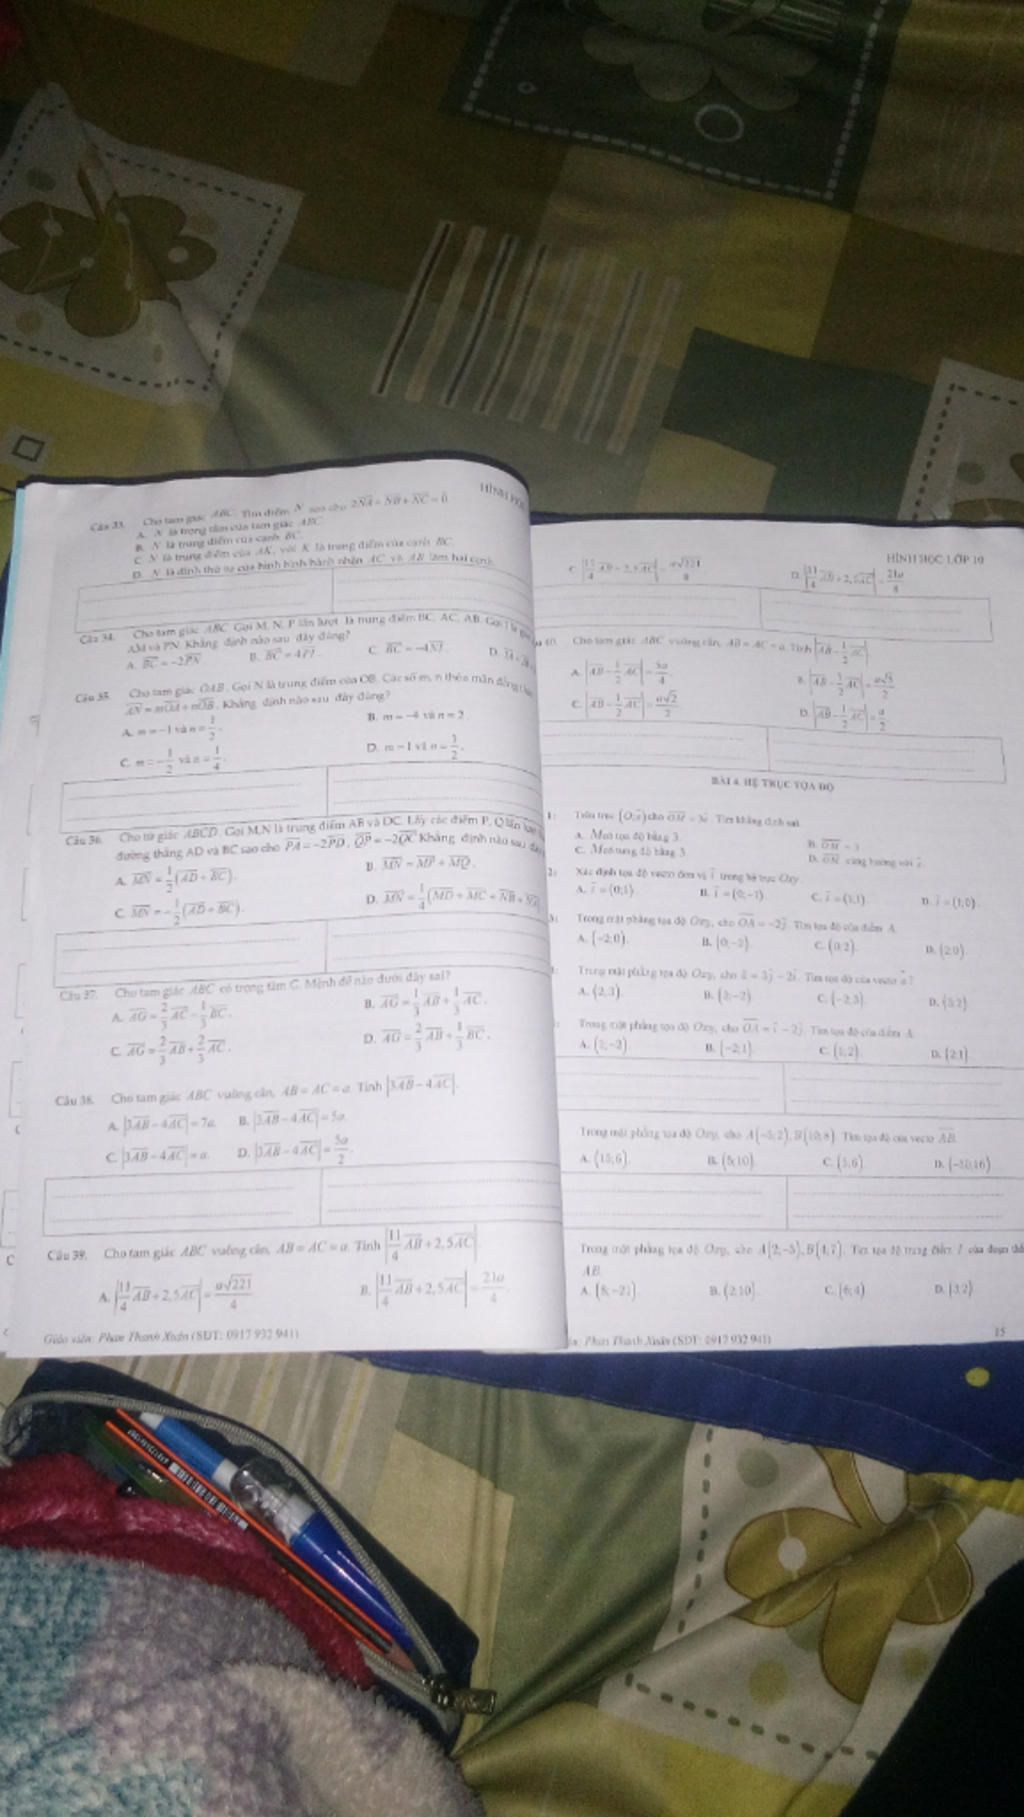 HÌNH HỌC
Câu 33. Cho tam giác ABC. Tìm điểm N sao cho 2NA + NB + NC = 0
A. N là trọng tâm của tam giác ABC
B. N là trung điểm của cạnh BC.
C. N là trung điểm của AK, với K là trung điểm của cạnh BC.
D. N là đỉnh thứ tư của hình bình hành nhận AC và AB làm hai cạnh
Câu 34. Cho tam giác ABC Gọi M, N, P lần lượt là trung điểm BC, AC, AB. Gọi I là
AM và PN. Khẳng định nào sau đây đúng?
A. BC = -2PN B. BC = 4PI. C. BC = -4NI. D.
Câu 35. Cho tam giác OAB. Gọi N là trung điểm của OB. Các số m, n thỏa mãn đẳng
AN = mOA + nOB. Khẳng định nào sau đây đúng?
A. m = -1 và n = 1/2. B. m = -4 và n = 2
C. m = -1/2 và n = 1/4. D. m = 1 và n = 1/2.
Câu 36. Cho tứ giác ABCD. Gọi M,N là trung điểm AB và DC. Lấy các điểm P, Q lần lượt
đường thẳng AD và BC sao cho PA = -2PD, QP = -2QC Khẳng định nào sau đây
A. MN = 1/2(AD + BC). B. MN = MP + MQ.
C. MN = -1/2(AD + BC). D. MN = 1/4(MD + MC + NB + NA)
Câu 37. Cho tam giác ABC có trọng tâm G. Mệnh đề nào dưới đây sai?
A. AG = 2/3 AC - 1/3 BC. B. AG = 1/3 AB + 1/3 AC.
C. AG = 2/3 AB + 2/3 AC. D. AG = 2/3 AB + 1/3 BC.
Câu 38. Cho tam giác ABC vuông cân, AB = AC = a Tính |3AB - 4AC|.
A. |3AB - 4AC| = 7a. B. |3AB - 4AC| = 5a.
C. |3AB - 4AC| = a. D. |3AB - 4AC| = 5a/2.
Câu 39. Cho tam giác ABC vuông cân, AB = AC = a Tính |11/4 AB + 2,5AC|.
A. |11/4 AB + 2,5AC| = a√221/4 B. |11/4 AB + 2,5AC| = 21a/4.
Giáo viên: Phan Thanh Xuân (SĐT: 0917 932 941)
HÌNH HỌC LỚP 10
C. |11/4 AB + 2,5AC| = a√221/8 D. |11/4 AB + 2,5AC| = 21a/8
40. Cho tam giác ABC vuông cân, AB = AC = a. Tính |AB - 1/2 AC|
A. |AB - 1/2 AC| = 5a/4 B. |AB - 1/2 AC| = a√5/2
C. |AB - 1/2 AC| = a√2/2 D. |AB - 1/2 AC| = a/2
BÀI 4. HỆ TRỤC TỌA ĐỘ
1: Trên trục cho Tìm khẳng định sai
A. M có tọa độ bằng 3 B. OM = 3
C. M có tung độ bằng 3 D. OM cùng hướng với
2: Xác định tọa độ vectơ đơn vị i trong hệ trục Oxy
A. i = (0;1) B. i = (0;-1) C. i = (1;1) D. i = (1;0)
3: Trong mặt phẳng tọa độ Oxy, cho OA = -2j. Tìm tọa độ của điểm A
A. (-2;0). B. (0;-2). C. (0;2). D. (2;0)
Trong mặt phẳng tọa độ Oxy, cho = 3j - 2i. Tìm tọa độ của vectơ a ?
A. (2;3). B. (3;-2) C. (-2;3). D. (3;2)
Trong mặt phẳng tọa độ Oxy, cho OA = i - 2j. Tìm tọa độ của điểm A
A. (1;-2) B. (-2;1) C. (1;2) D. (2;1)
Trong mặt phẳng tọa độ Oxy, cho A(-5;2), B(10;8). Tìm tọa độ của vectơ AB.
A. (15;6). B. (5;10) C. (5;6) D. (-50;16)
Trong mặt phẳng tọa độ Oxy, cho A(2;-3), B(4;7). Tìm tọa độ trung điểm I của đoạn
AB.
A. (8;-21). B. (2;10) C. (6;4) D. (3;2)
Phan Thanh Xuân (SĐT: 0917 932 941)
15